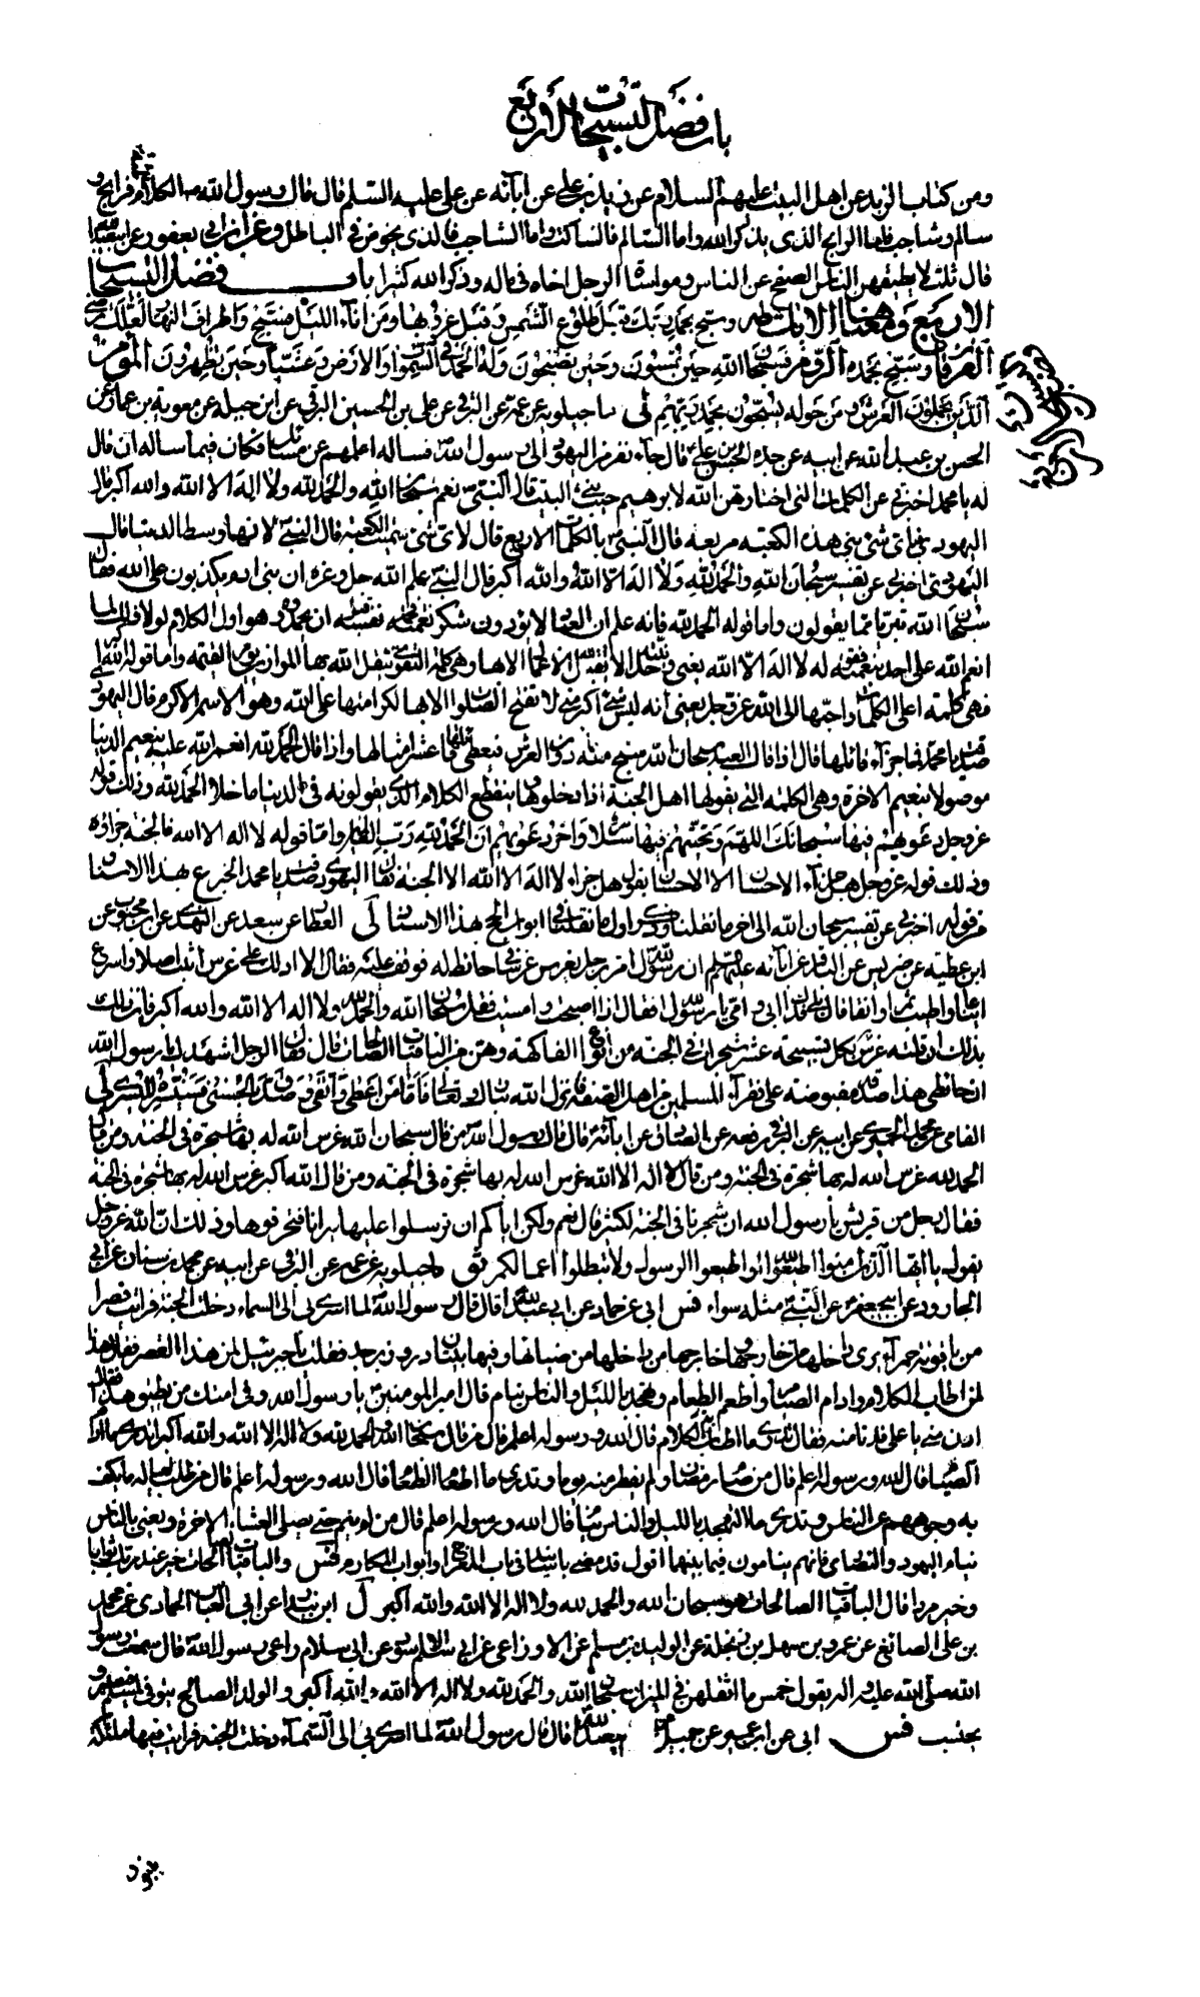 باب فضل التسبيحات الأربع
ومن كتاب الزهد عن اهل البيت عليهم السلام عن زيد بن علي عن ابآئه عن علي عليه السلم قال قال رسول الله ص الكلام ثلثة فرابح و
سالم وشاجب فاما الرابح الذي يذكر الله واما السالم فالساكت واما الشاجب فالذي يخوض في الباطل وعن ابن ابي يعفور عن ابيعبدالله
قال ثلث لا يطيقهن الناس الصفح عن الناس ومواساة الرجل اخاه في ماله وذكر الله كثيرا باب فضل التسبيحات
الاربع ومعناها الايات طه وسبح بحمد ربك قبل طلوع الشمس وقبل غروبها ومن انآء الليل فسبح واطراف النهار لعلك ترضى
الفرقان وسبح بحمده الروم فسبحان الله حين تمسون وحين تصبحون وله الحمد في السموات والارض وعشيا وحين تظهرون المؤمن
الذين يحملون العرش ومن حوله يسبحون بحمد ربهم لى ماجيلويه عن عمه عن البرقي عن علي بن الحسين البرقي عن ابن جبلة عن معوية بن عمار عن
الحسن بن عبد الله عن ابيه عن جده الحسن بن علي ع قال جآء نفر من اليهود الى رسول الله ص فساله اعلمهم عن مسائل فكان فيما ساله ان قال
له يا محمد اخبرني عن الكلمات التي اختارهن الله لابرهيم حيث بنى البيت قال النبي ص نعم سبحان الله والحمد لله ولا اله الا الله والله اكبر قال
اليهودي فباي شئ بني هذه الكعبة مربعة قال النبي ص بالكلمات الاربع قال لاي شئ سميت الكعبة قال النبي ص لانها وسط الدنيا قال
اليهودي اخبرني عن تفسير سبحان الله والحمد لله ولا اله الا الله والله اكبر قال النبي ص علم الله جل وعز ان بني ادم يكذبون على الله فقال
سبحان الله تبريا مما يقولون واما قوله الحمد لله فانه علم ان العباد لا يؤدون شكر نعمته فحمد نفسه قبل ان يحمدوه وهو اول الكلام لولا ذلك لما
انعم الله على احد بنعمته فقوله لا اله الا الله يعني وحدانيته لا يقبل الاعمال الا بها وهي كلمة التقوى يثقل الله بها الموازين يوم القيمة واما قوله الله اكبر
فهي كلمة اعلى الكلمات واحبها الى الله عز وجل يعني انه ليس شئ اكبر مني لا تفتح الصلوات الا بها لكرامتها على الله وهو الاسم الاكرم قال اليهودي
صدقت يا محمد فما جزآء قائلها قال اذا قال العبد سبحان الله سبح معه ما دون العرش فيعطى قائلها عشر امثالها واذا قال الحمد لله انعم الله عليه بنعيم الدنيا
موصولا بنعيم الاخرة وهي الكلمة التي يقولها اهل الجنة اذا دخلوها ينقطع الكلام الذي يقولونه في الدنيا ما خلا الحمد لله وذلك قوله
عز وجل دعويهم فيها سبحانك اللهم وتحيتهم فيها سلام واخر دعويهم ان الحمد لله رب العالمين واما قوله لا اله الا الله فالجنة جزاؤه
وذلك قوله عز وجل هل جزآء الاحسان الا الاحسان يقول هل جزاء لا اله الا الله الا الجنة فقال اليهودي صدقت يا محمد الخبر ع بهذا الاسناد
من قوله اخبرني عن تفسير سبحان الله الى اخر ما نقلنا لى العطار عن سعد عن النهدي عن ابن محبوب عن
ابن عطية عن ضريس عن الباقر عن ابآئه عليهم السلم ان رسول الله ص مر برجل يغرس غرسا في حائط له فوقف عليه فقال الا ادلك على غرس اثبت اصلا واسرع
ايناعا واطيب ثمرا وابقى قال بلى فداك ابي وامي يا رسول الله فقال اذا اصبحت وامسيت فقل سبحان الله والحمد لله ولا اله الا الله والله اكبر فان لك
بذلك ان قلته بكل تسبيحة عشر شجرات في الجنة من انواع الفاكهة وهن من الباقيات الصالحات قال فقال الرجل اشهدك يا رسول الله
ان حائطي هذا صدقة مقبوضة على فقرآء المسلمين من اهل الصفة فانزل الله تبارك وتعالى فاما من اعطى واتقى وصدق بالحسنى فسنيسره لليسرى لى
الفامي عن محمد الحميري عن ابيه عن البرقي رفعه عن الصادق عن ابآئه ع قال قال رسول الله ص من قال سبحان الله غرس الله له بها شجرة في الجنة ومن قال
الحمد لله غرس الله له بها شجرة في الجنة ومن قال لا اله الا الله غرس الله له بها شجرة في الجنة ومن قال الله اكبر غرس الله له بها شجرة في الجنة
فقال رجل من قريش يا رسول الله ان شجرنا في الجنة لكثير قال نعم ولكن اياكم ان ترسلوا عليها نيرانا فتحرقوها وذلك ان الله عز وجل
يقول يا ايها الذين امنوا اطيعوا الله واطيعوا الرسول ولا تبطلوا اعمالكم ثو ماجيلويه عن عمه عن البرقي عن ابيه عن محمد بن سنان عن ابي
الجارود عن ابيجعفر ع عن النبي ص مثله سواء فس ابي عن حماد عن ابي عبدالله ع قال قال رسول الله ص لما اسري بي الى السماء دخلت الجنة فرايت قصرا
من ياقوتة حمرآء يرى داخلها من خارجها وخارجها من داخلها من ضيائها وفيها بيتان در وزبرجد فقلت يا جبرئيل لمن هذا القصر فقال هذا
لمن اطاب الكلام وادام الصيام واطعم الطعام وتهجد بالليل والناس نيام قال امير المؤمنين ع يا رسول الله وفي امتك من يطيق هذا فقال
ادن مني يا علي فدنا منه فقال تدري ما اطابة الكلام قال الله ورسوله اعلم قال من قال سبحان الله والحمد لله ولا اله الا الله والله اكبر اتدري ما ادامة
الصيام قال الله ورسوله اعلم قال من صام رمضان ولم يفطر منه يوما وتدري ما اطعام الطعام قال الله ورسوله اعلم قال من طلب لعياله ما يكف
به وجوههم عن الناس وتدري ما التهجد بالليل والناس نيام قال الله ورسوله اعلم قال من لم ينم حتى يصلي العشاء الاخرة ويعني بالناس
نيام اليهود والنصارى فانهم ينامون فيما بينهما اقول قد مضى باسانيد في باب وابواب المكارم فس والباقيات الصالحات خير عند ربك ثوابا
وخير مردا قال الباقيات الصالحات هو سبحان الله والحمد لله ولا اله الا الله والله اكبر ل ابن بندار عن ابي العباس الحمادي عن محمد
بن علي الصائغ عن عمرو بن سهل بن زنجلة عن الوليد بن مسلم عن الاوزاعي عن ابي سلام الاسود عن ابي سلام راعي رسول الله ص قال سمعت رسول
الله صلى الله عليه واله يقول خمس ما اثقلهن في الميزان سبحان الله والحمد لله ولا اله الا الله والله اكبر والولد الصالح يتوفى لمسلم فيصبر و
يحتسب فس ابي عن ابن ابي عمير عن جميل عن ابيعبدالله ع قال قال رسول الله ص لما اسري بي الى السمآء دخلت الجنة فرايت فيها ملئكة
يبنون